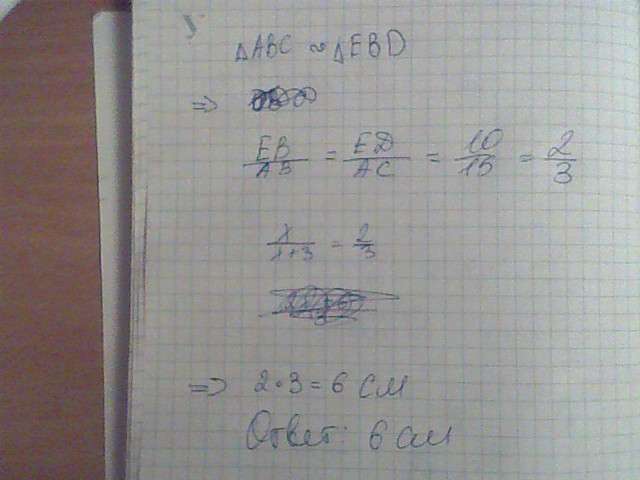 △ABC ∾ △EBD
⇒
EB/AB = ED/AC = 10/15 = 2/3
x/x+3 = 2/3
⇒ 2·3=6 см
Ответ: 6 см